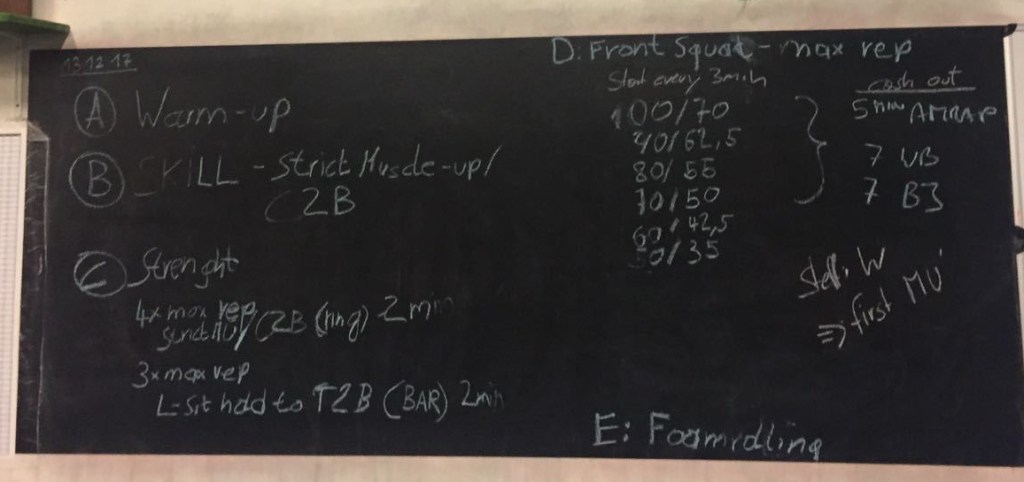 13.12.17
A Warm-up
B SKILL - Strict Muscle-up/
C2B
C Strenght
4x max rep
strict MU/C2B (ring) 2 min
3x max rep
L-Sit hold to T2B (BAR) 2min
D: Front Squat - max rep
Start every 3min
100/70
90/62,5
80/55
70/50
60/42,5
50/35
cash out
5 min AMRAP
7 WB
7 BJ
W
⇒ first MU
E: Foamrolling